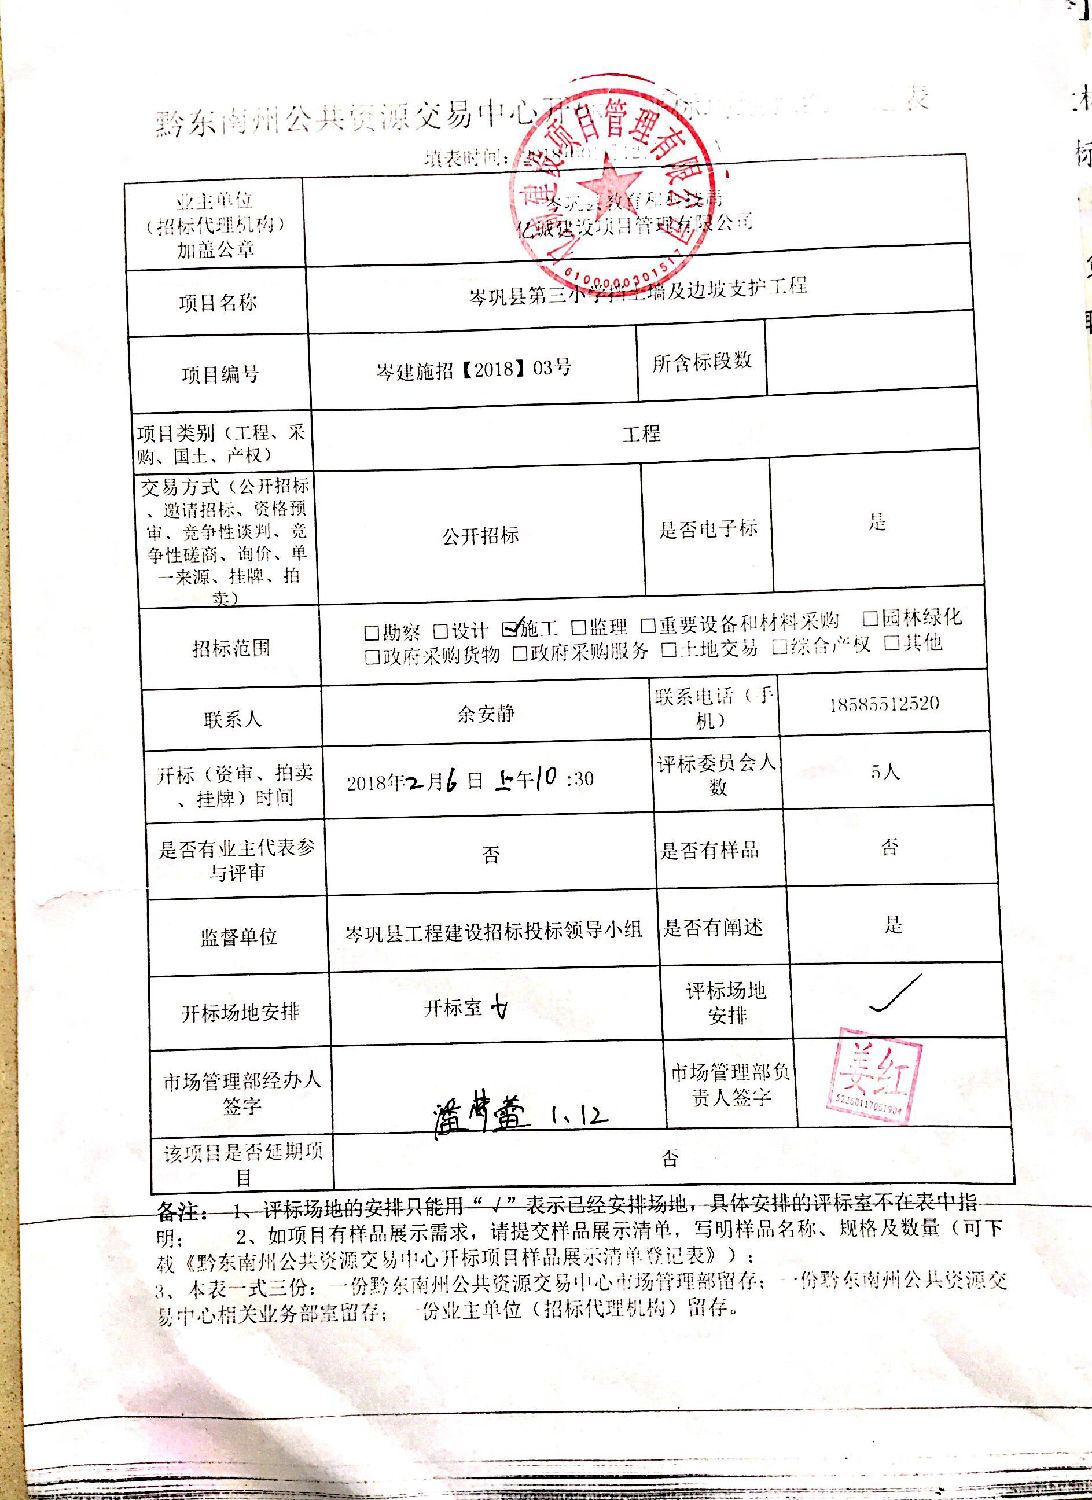 黔东南州公共资源交易中心开
表
填表时间：
业主单位
（招标代理机构）
加盖公章
亿诚建设项目管理有限公司
亿诚建设项目管理有限公司
6100000301517
项目名称
岑巩县第三小学挡土墙及边坡支护工程
项目编号
岑建施招【2018】03号
所含标段数
项目类别（工程、采
购、国土、产权）
工程
交易方式（公开招标
、邀请招标、资格预
审、竞争性谈判、竞
争性磋商、询价、单
一来源、挂牌、拍
卖）
公开招标
是否电子标
是
招标范围
□勘察 □设计 ☑施工 □监理 □重要设备和材料采购 □园林绿化
□政府采购货物 □政府采购服务 □土地交易 □综合产权 □其他
联系人
余安静
联系电话（手
机）
18585512520
开标（资审、拍卖
、挂牌）时间
2018年2月6日 上午10:30
评标委员会人
数
5人
是否有业主代表参
与评审
否
是否有样品
否
监督单位
岑巩县工程建设招标投标领导小组
是否有阐述
是
开标场地安排
开标室七
评标场地
安排
✓
市场管理部经办人
签字
1.12
市场管理部负
责人签字
姜红
该项目是否延期项
目
否
备注： 1、评标场地的安排只能用“√”表示已经安排场地，具体安排的评标室不在表中指
明； 2、如项目有样品展示需求，请提交样品展示清单，写明样品名称、规格及数量（可下
载《黔东南州公共资源交易中心开标项目样品展示清单登记表》）；
3、本表一式三份：一份黔东南州公共资源交易中心市场管理部留存；一份黔东南州公共资源交
易中心相关业务部室留存；一份业主单位（招标代理机构）留存。